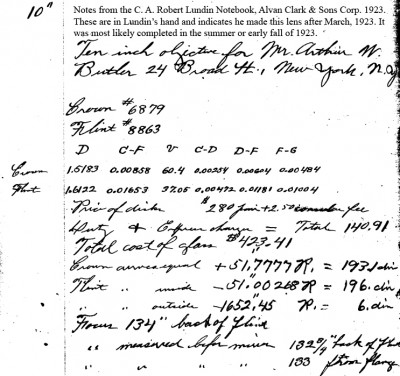 10"
Notes from the C. A. Robert Lundin Notebook, Alvan Clark & Sons Corp. 1923.
These are in Lundin's hand and indicates he made this lens after March, 1923. It
was most likely completed in the summer or early fall of 1923.
Ten inch objective for Mr. Arthur W.
Butler 24 Broad St., New York, N.Y
Crown #6879
Flint #8863
D C-F V C-D D-F F-G
Crown 1.5183 0.00858 60.4 0.00254 0.00604 0.00484
Flint 1.6122 0.01653 37.05 0.00472 0.01181 0.01004
Price of disks $280 pair + 2.50 consular fee
Duty & Express charges = Total 140.91
Total cost of glass $423.41
Crown curves equal +51."7777 R. = 193 1 div
Flint " inside -51."00268 R = 196. div
" outside -1652."45 R. = 6. div
Focus 134" back of Flint
" measured before mirror 132 3/4" back of
" " " 133 from flang